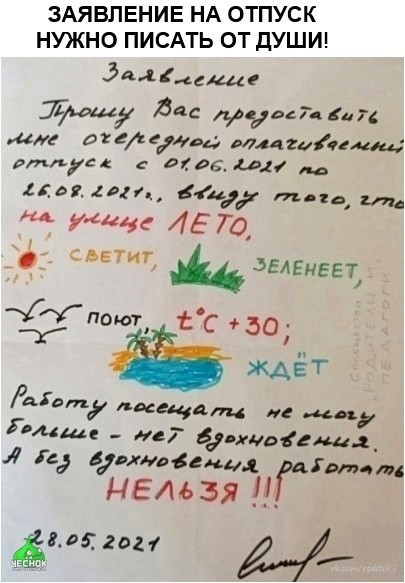 ЗАЯВЛЕНИЕ НА ОТПУСК
НУЖНО ПИСАТЬ ОТ ДУШИ!
Заявление
Прошу Вас предоставить
мне очередной оплачиваемый
отпуск с 01.06.2021 по
26.08.2021г., ввиду того, что
на улице ЛЕТО,
СВЕТИТ,
ЗЕЛЕНЕЕТ,
ПОЮТ, t°C +30;
ЖДЁТ
Работу посещать не могу
больше - нет вдохновения.
А без вдохновения работать
НЕЛЬЗЯ !!!
28.05.2021
Сообщество
"РОДИТЕЛИ И
ПЕДАГОГИ"
ЧЕСНОК